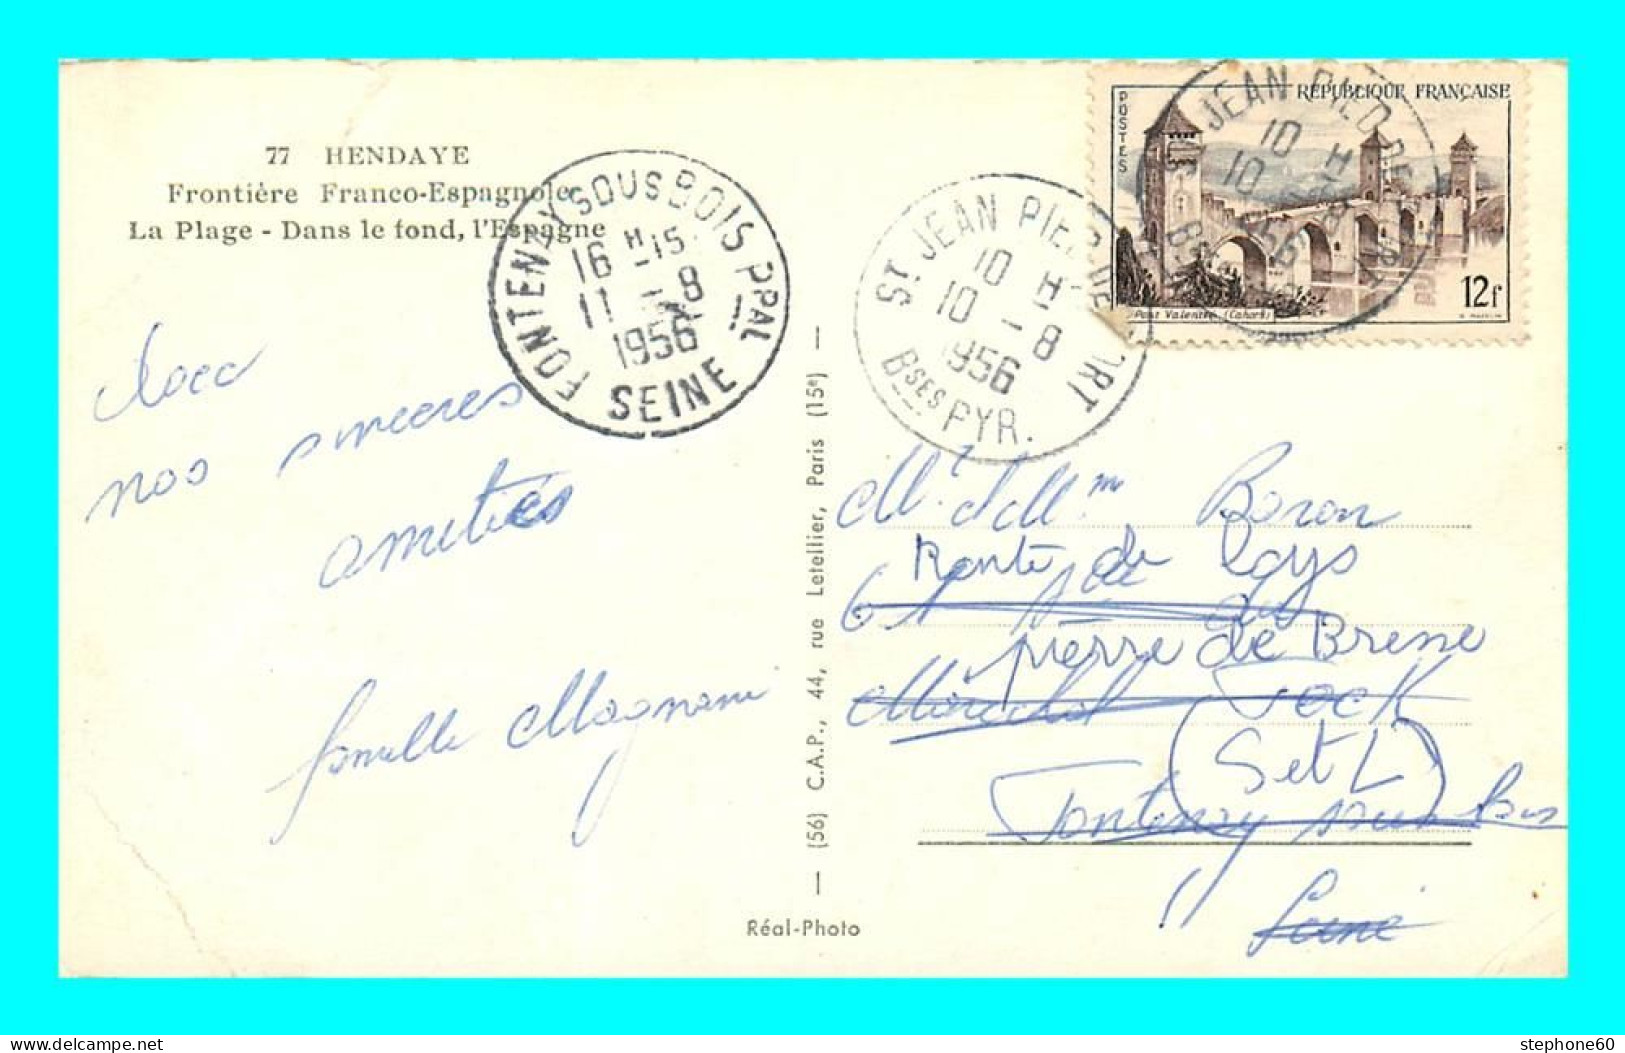 77 HENDAYE
Frontière Franco-Espagnole
La Plage - Dans le fond, l'Espagne
FONTENAY SOUS BOIS PPAL
16 H 15
11 - 8
1956
SEINE
ST JEAN PIED DE PORT
10 H
10 - 8
1956
BSES PYR.
ST JEAN PIED DE PORT
10 H
10 - 8
1956
POSTES
RÉPUBLIQUE FRANÇAISE
12f
Pont Valentré (Cahors)
Avec
nos sinceres
amitiés
famille Magnani
— (56) C.A.P., 44, rue Letellier, Paris (15e) —
Réal-Photo
Mr & Mme Boron
Route de Lays
61
pierre de Bresse
Maréchal
(S et L)
Fontenay sous Bois
Seine
stephone60